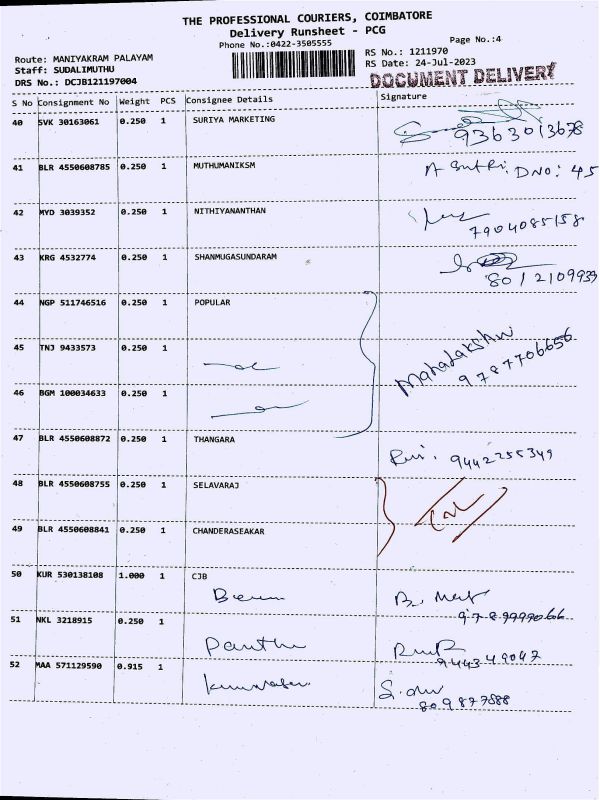 THE PROFESSIONAL COURIERS, COIMBATORE
Delivery Runsheet - PCG
Phone No.:0422-3505555
Page No.:4
Route: MANIYAKRAM PALAYAM
Staff: SUDALIMUTHU
DRS No.: DCJB121197004
RS No.: 1211970
RS Date: 24-Jul-2023
DOCUMENT DELIVERY
S No Consignment No Weight PCS Consignee Details Signature
40 SVK 30163061 0.250 1 SURIYA MARKETING
9363013678
41 BLR 4550608785 0.250 1 MUTHUMANIKSM
DNO: 45
42 MYD 3039352 0.250 1 NITHIYANANTHAN
7904085158
43 KRG 4532774 0.250 1 SHANMUGASUNDARAM
8012109939
44 NGP 511746516 0.250 1 POPULAR
45 TNJ 9433573 0.250 1
Mahalakshmi
9787706656
46 BGM 100034633 0.250 1
47 BLR 4550608872 0.250 1 THANGARA
9442255349
48 BLR 4550608755 0.250 1 SELAVARAJ
49 BLR 4550608841 0.250 1 CHANDERASEAKAR
50 KUR 530138108 1.000 1 CJB
51 NKL 3218915 0.250 1
944349047
52 MAA 571129590 0.915 1